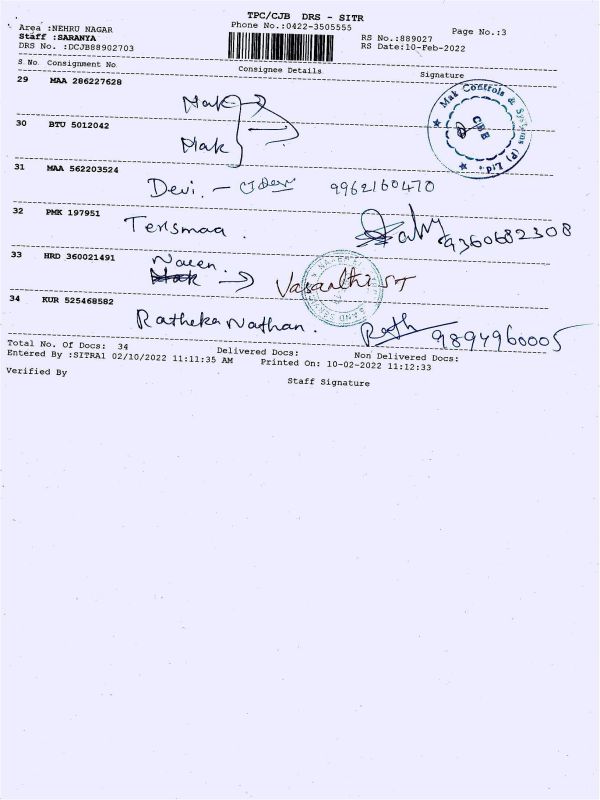 TPC/CJB DRS - SITR
Area :NEHRU NAGAR
Phone No.:0422-3505555
Page No.:3
Staff :SARANYA
RS No.:889027
DRS No. :DCJB88902703
RS Date:10-Feb-2022
S No. Consignment No
Consignee Details
Signature
29 MAA 286227628
Mak
Mak Controls & Systems (P) Ltd.
CBE
30 BTU 5012042
Mak
31 MAA 562203524
Devi. - 9962160470
32 PMK 197951
9360682308
33 HRD 360021491
Naren.
Mak → Vasanthi
34 KUR 525468582
Ratheka Nathan. 9894960005
Total No. Of Docs: 34
Delivered Docs:
Non Delivered Docs:
Entered By :SITRA1 02/10/2022 11:11:35 AM
Printed On: 10-02-2022 11:12:33
Verified By
Staff Signature